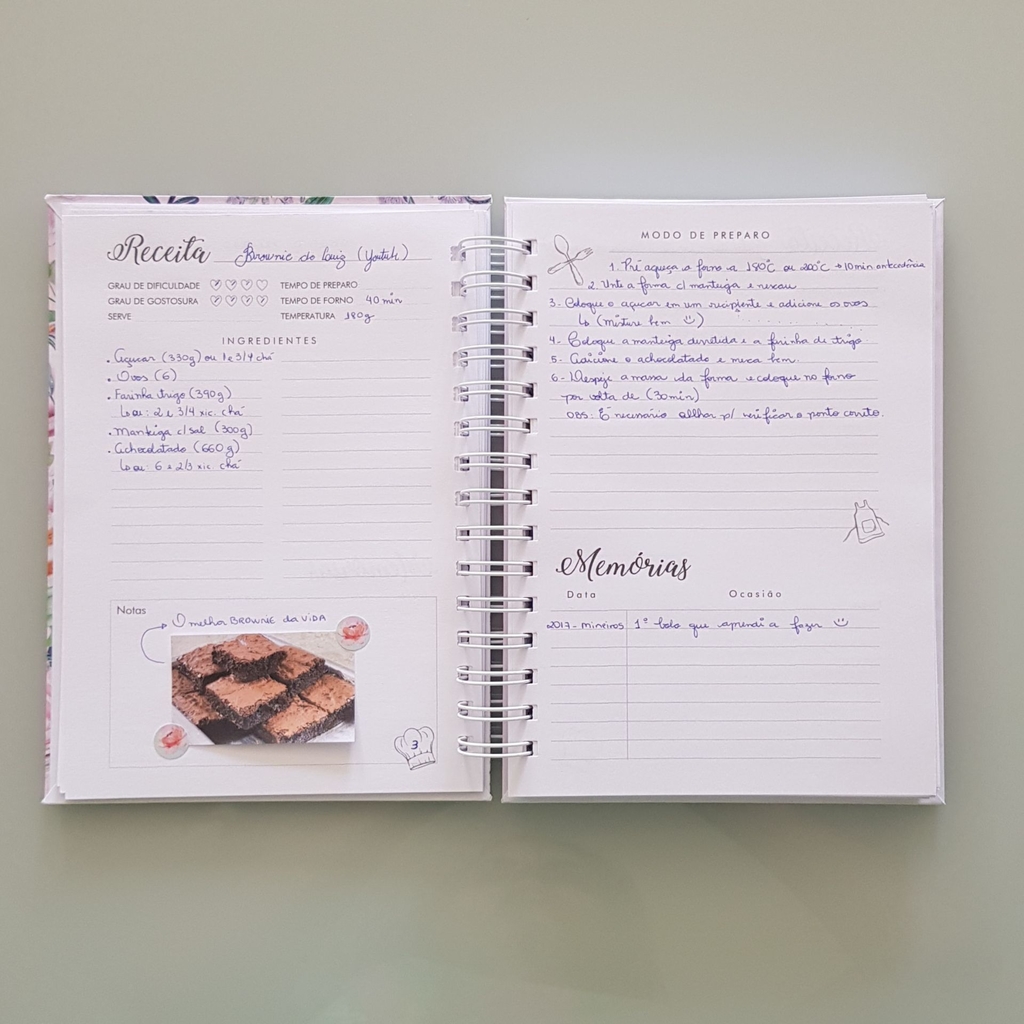 Receita Brownie do Luiz (Youtube)
GRAU DE DIFICULDADE TEMPO DE PREPARO
GRAU DE GOSTOSURA TEMPO DE FORNO 40 min
SERVE TEMPERATURA 180g
INGREDIENTES
• Açucar (330g) ou 1 e 3/4 chá
• Ovos (6)
• Farinha trigo (390g)
↳ ou: 2 e 3/4 xic. chá
• Manteiga c/sal (300g)
• Achocolatado (660g)
↳ ou: 6 e 2/3 xic. chá
Notas
O melhor BROWNIE da ViDA
3
MODO DE PREPARO
1. Pré aqueça o forno a 180°C ou 200°C → 10 min antecedência
2. Unte a forma c/ manteiga e
3. Coloque o açucar em um recipiente e adicione os ovos
↳ (misture bem ☺)
4. Coloque a manteiga derretida e a farinha de trigo
5. Adicione o achocolatado e mexa bem.
6. Despeje a massa da forma e coloque no forno
por volta de (30min)
OBS: É necessário olhar p/ verificar o ponto correto.
Memórias
Data Ocasião
2017 - Mineiros 1º bolo que aprendi a fazer ☺